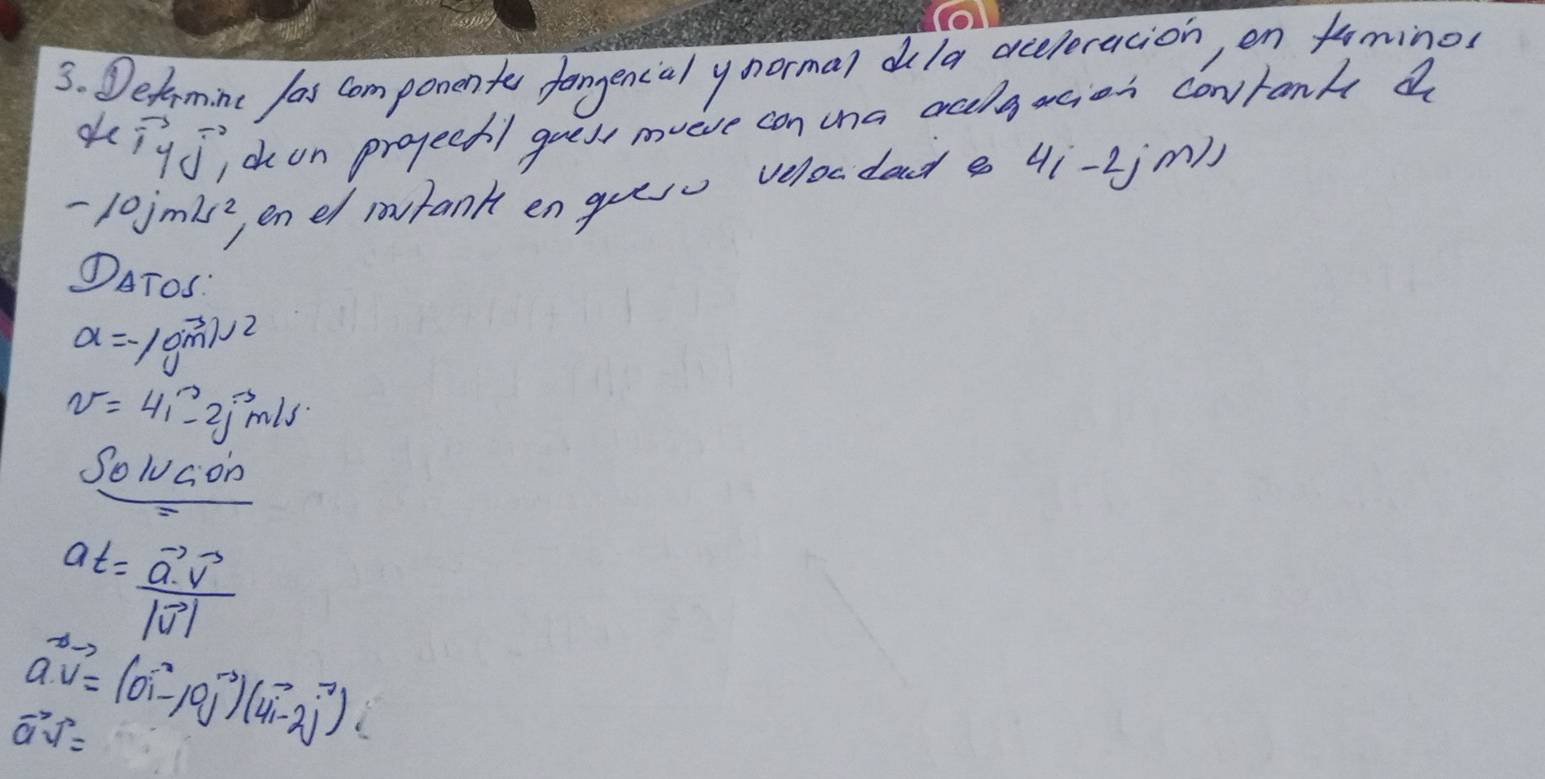 3. Determine las componentes tangencial y normal de la aceleración, en terminos
de i⃗ y j⃗, de un proyectil que se mueve con una aceleración constante de
-10j m/s², en el instante en que su velocidad es 4i - 2j m/s
DATOS:
a = -10j⃗ m/s²
v = 4i⃗ - 2j⃗ m/s.
Solución
at = a⃗.v⃗ / |v⃗|
a⃗.v⃗ = (0i⃗ - 10j⃗)(4i⃗ - 2j⃗)
a⃗.v⃗ =